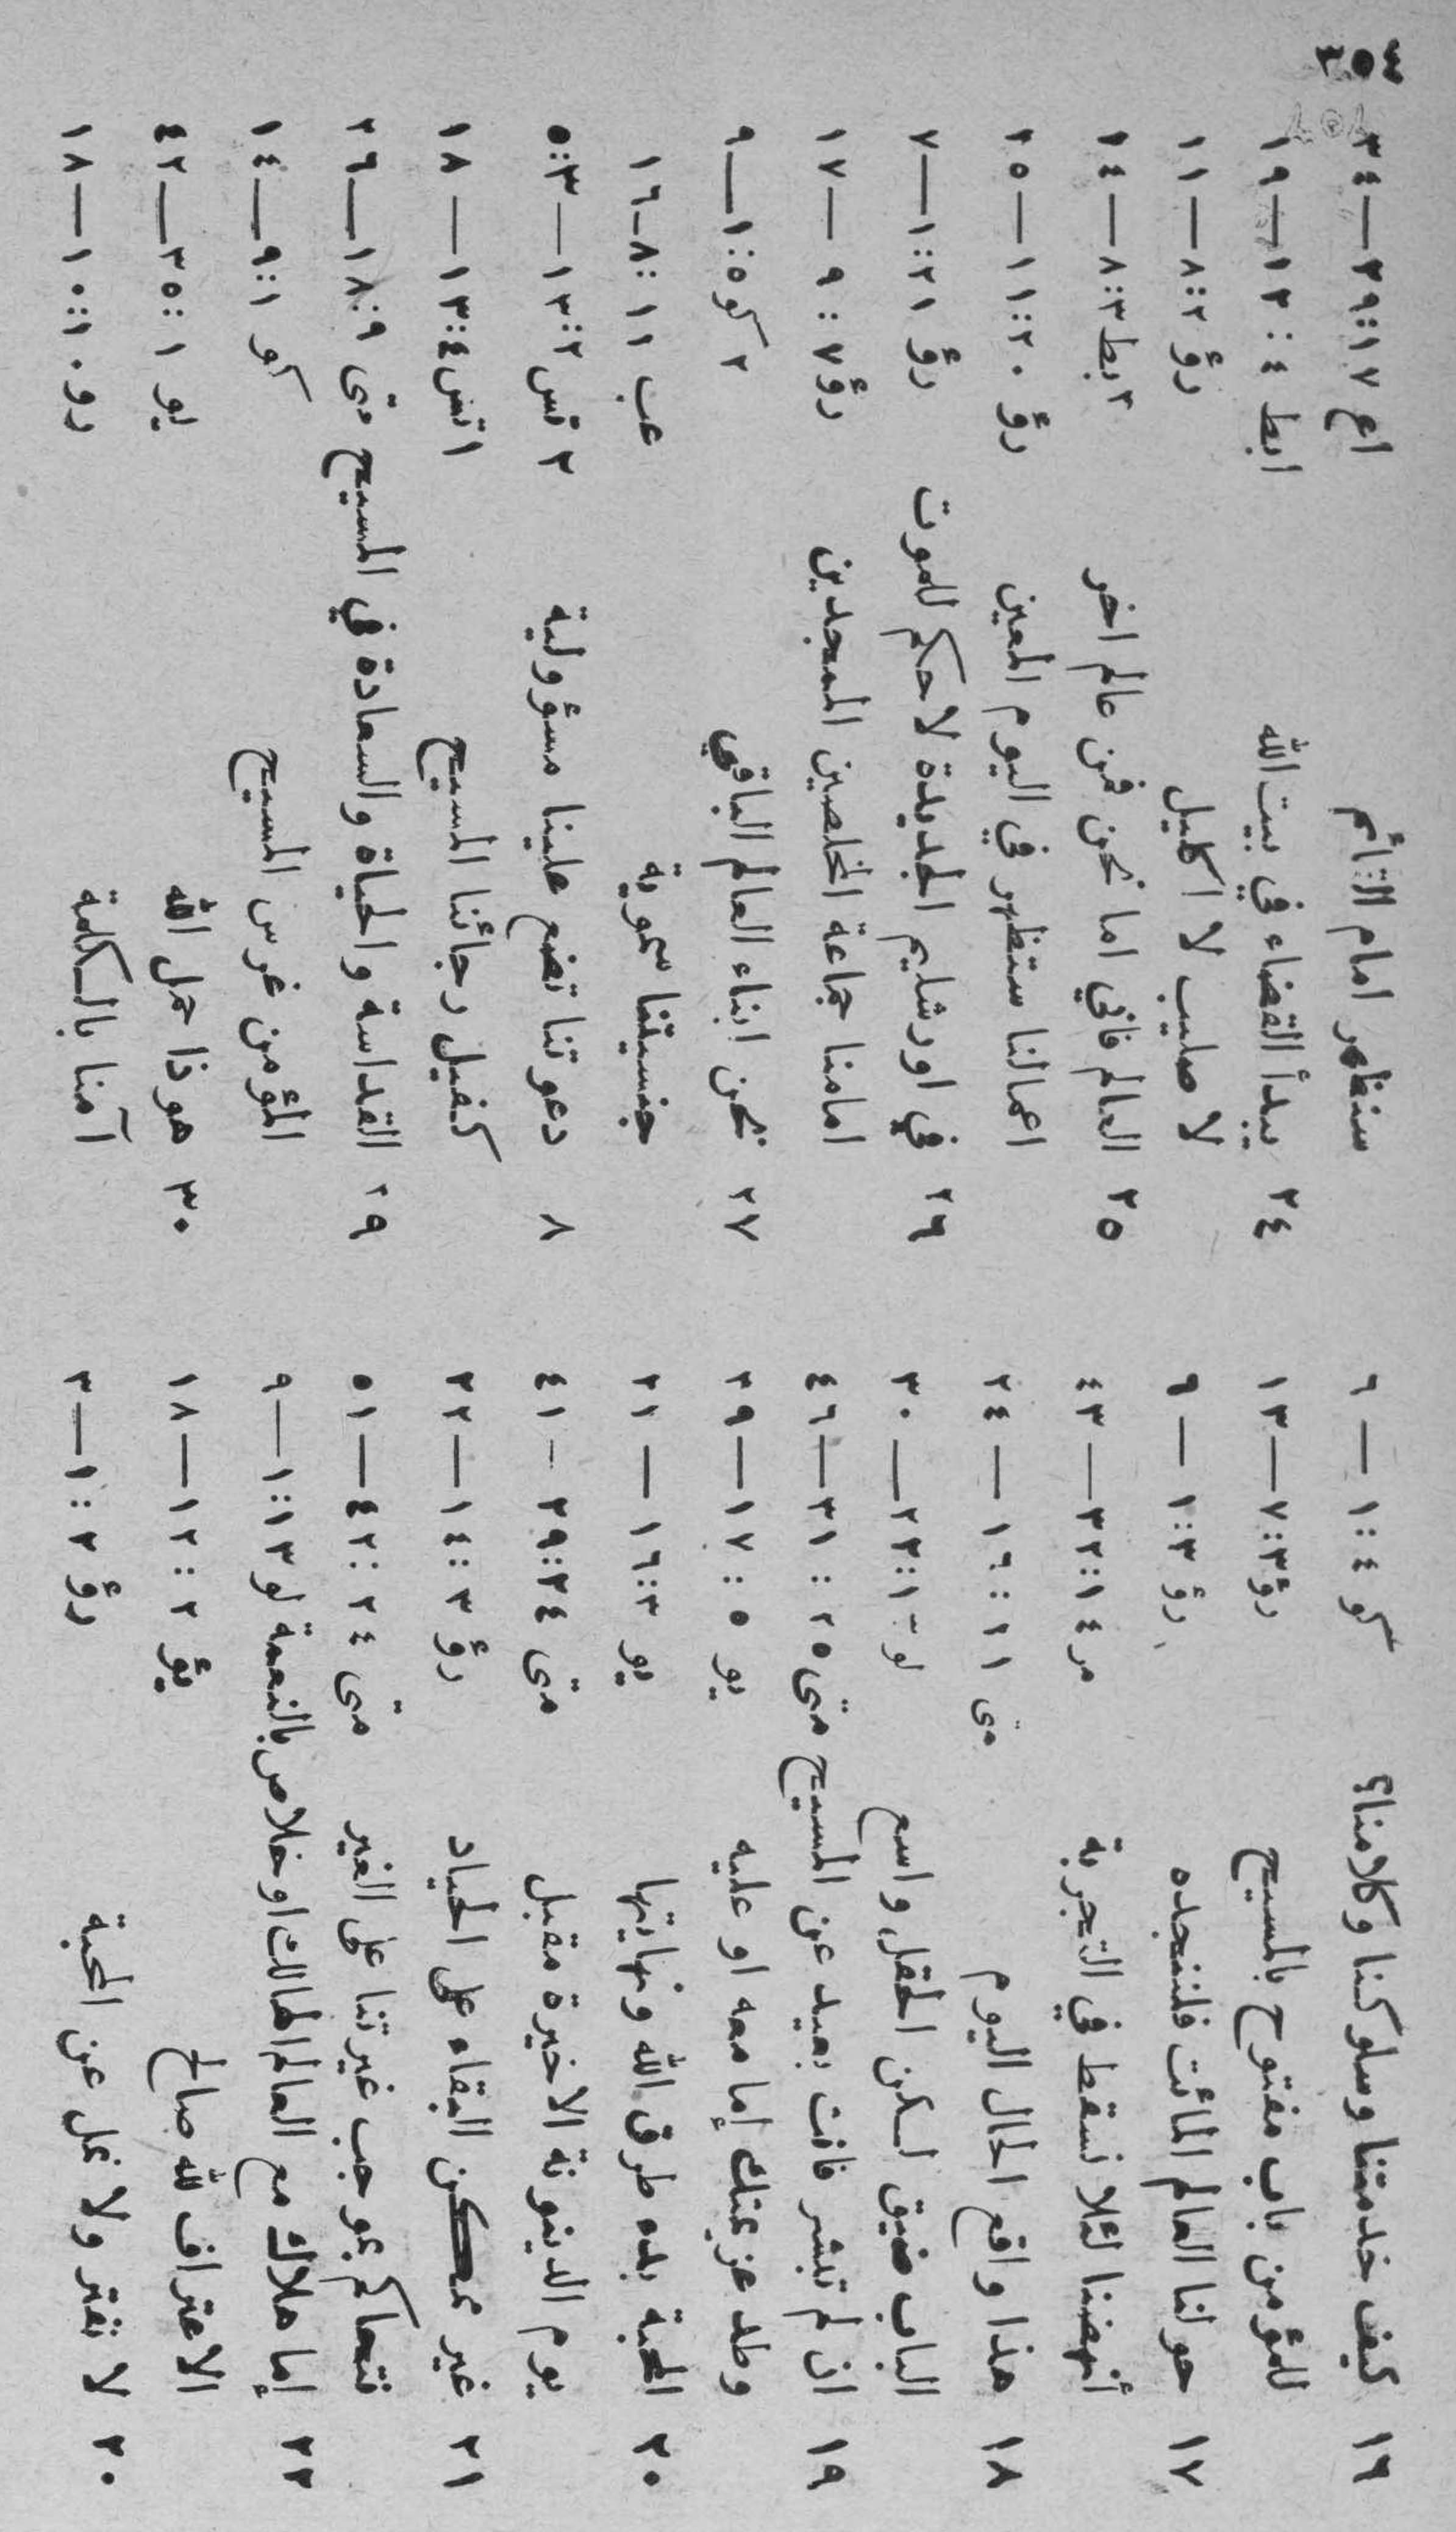 ٣٥٤
١٦ كيف خدمتنا وسلوكنا وكلامنا؟ كو ٤:١—٦
للمؤمن باب مفتوح بالمسيح رؤ٣:٧—١٣
١٧ حولنا العالم المائت فلننجده رؤ ٣:١—٩
أنهضنا لئلا نسقط في التجربة مر ١٤:٣٢—٤٣
١٨ هذا واقع الحال اليوم متى ١١:١٦—٢٤
الباب ضيق لكن الحقل واسع لو ١٣:٢٣—٣٠
١٩ ان لم تبشر فانت بعيد عن المسيح متى ٢٥:٣١—٤٦
وطد عزيمتك إما معه او عليه يو ٥:١٧—٢٩
٢٠ المحبة بدء طرق الله ونهايتها يو ٣:١٦—٢١
يوم الدينونة الاخيرة مقبل متى ٢٤:٢٩—٤١
٢١ غير ممكن البقاء على الحياد رؤ ٣:١٤—٢٢
فتحاكم بموجب غيرتنا على الغير متى ٢٤:٤٢—٥١
٢٢ إما هلاك مع العالم الهالك او خلاص بالنعمة لو ١٣:١—٩
الاعتراف لله صالح يؤ ٢:١٢—١٨
٢٠ لا نفتر ولا نمل عن المحبة رؤ ٢:١—٣
سنظهر امام الآثم اع ١٧:٢٩—٣٤
٢٤ يبدأ القضاء في بيت الله ابط ٤:١٢—١٩
لا صليب لا اكليل رؤ ٢:٨—١١
٢٥ العالم فاني اما نحن فمن عالم اخر ٢بط ٣:٨—١٤
اعمالنا ستظهر في اليوم المعين رؤ ٢٠:١١—١٥
٢٦ في اورشليم الجديدة لا حكم للموت رؤ ٢١:١—٧
امامنا جماعة المخلصين الممجدين رؤ٧:٩—١٧
٢٧ نحن ابناء العالم الباقي ٢ كو٥:١—٩
جنسيتنا سموية عب ١١:٨—١٦
٨ دعوتنا تضع علينا مسؤولية ٢ تس ٢:١٣—٣:٥
كفيل رجائنا المسيح ١تس٤:١٣—١٨
٢٩ القداسة والحياة والسعادة في المسيح متى ٩:١٨—٢٦
المؤمن غرس المسيح كو ١:٩—١٤
٣٠ هوذا حمل الله يو ١:٣٥—٤٢
آمنا بالكلمة رو١٠:١٠—١٨